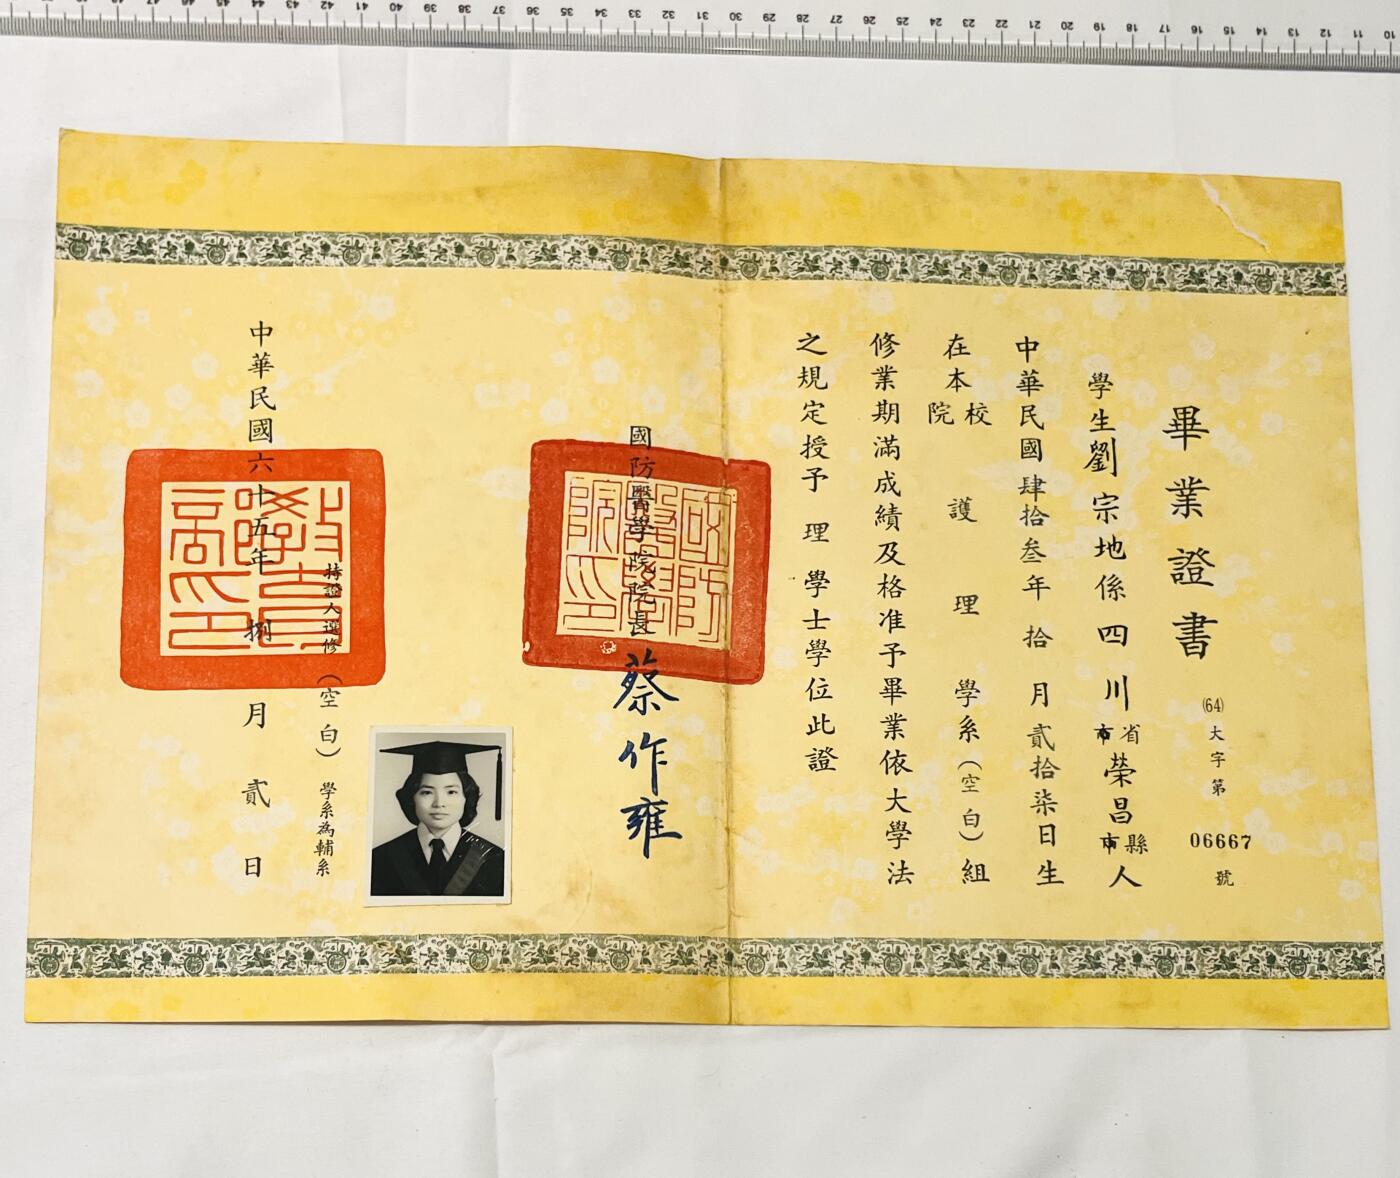 畢業證書
(64)大字第06667號
學生劉宗地係四川省市榮昌縣市人
中華民國肆拾叁年拾月貳拾柒日生
在本校院護理學系(空白)組
修業期滿成績及格准予畢業依大學法
之規定授予理學士學位此證
國防醫學院院長蔡作雍
國防醫學院印
持證人選修(空白)學系為輔系
中華民國六十五年捌月貳日
10 11 12 13 14 15 16 17 18 19 20 21 22 23 24 25 26 27 28 29 30 31 32 33 34 35 36 37 38 39 40 41 42 43 44 45 46 47 48 49